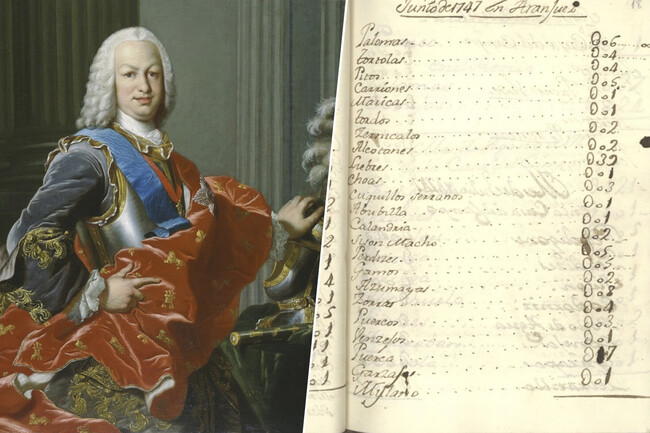 Junio de 1747 en Aranjuez
Palomas 006
tortolas 004
Pitos 004
Carriones 005
Maricas 001
tordos 001
Zernicalos 002
Alcotanes 002
Liebres
Choas 001
Cuquillos serranos 003
Abubilla 001
Calandria 001
Sison Macho 002
Perdizes 005
Gamos 005
Azumayas 002
Zorras 008
Puercos 004
Venzejos 003
Puerca
Garzas 001
Mylano